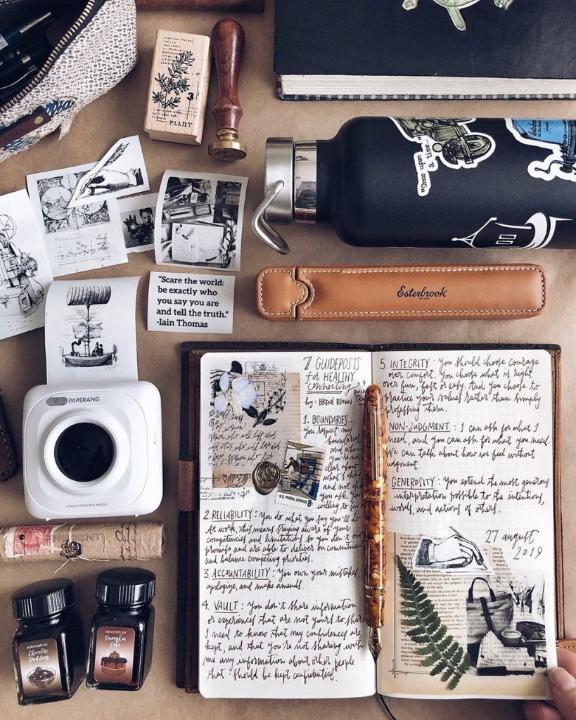 PLANT
"Once upon
a time...
Esterbrook
"Scare the world:
be exactly who
you say you are
and tell the truth."
-Iain Thomas
PAPERANG
7 GUIDEPOSTS
for HEALTHY
by: Brené Brown
1. BOUNDARIES:
You respect my
boundaries
2. RELIABILITY: You do what you say you'll do.
At work, this means staying aware of your
competencies and limitations so you don't over
promise and are able to deliver on commitments
and balance competing priorities.
3. ACCOUNTABILITY: You own your mistakes,
apologize, and make amends.
4. VAULT: You don't share information
or experiences that are not yours to share.
I need to know that my confidences are
kept, and that you're not sharing with
me any information about other people
that should be kept confidential.
5. INTEGRITY: You should choose courage
over comfort. You choose what is right
over fun, fast or easy. And you choose to
practice your values rather than simply
professing them.
NON-JUDGMENT: I can ask for what I
need, and you can ask for what you need.
We can talk about how we feel without
judgment.
GENEROSITY: You extend the most generous
interpretation possible to the intentions,
words, and actions of others.
27 august
2019